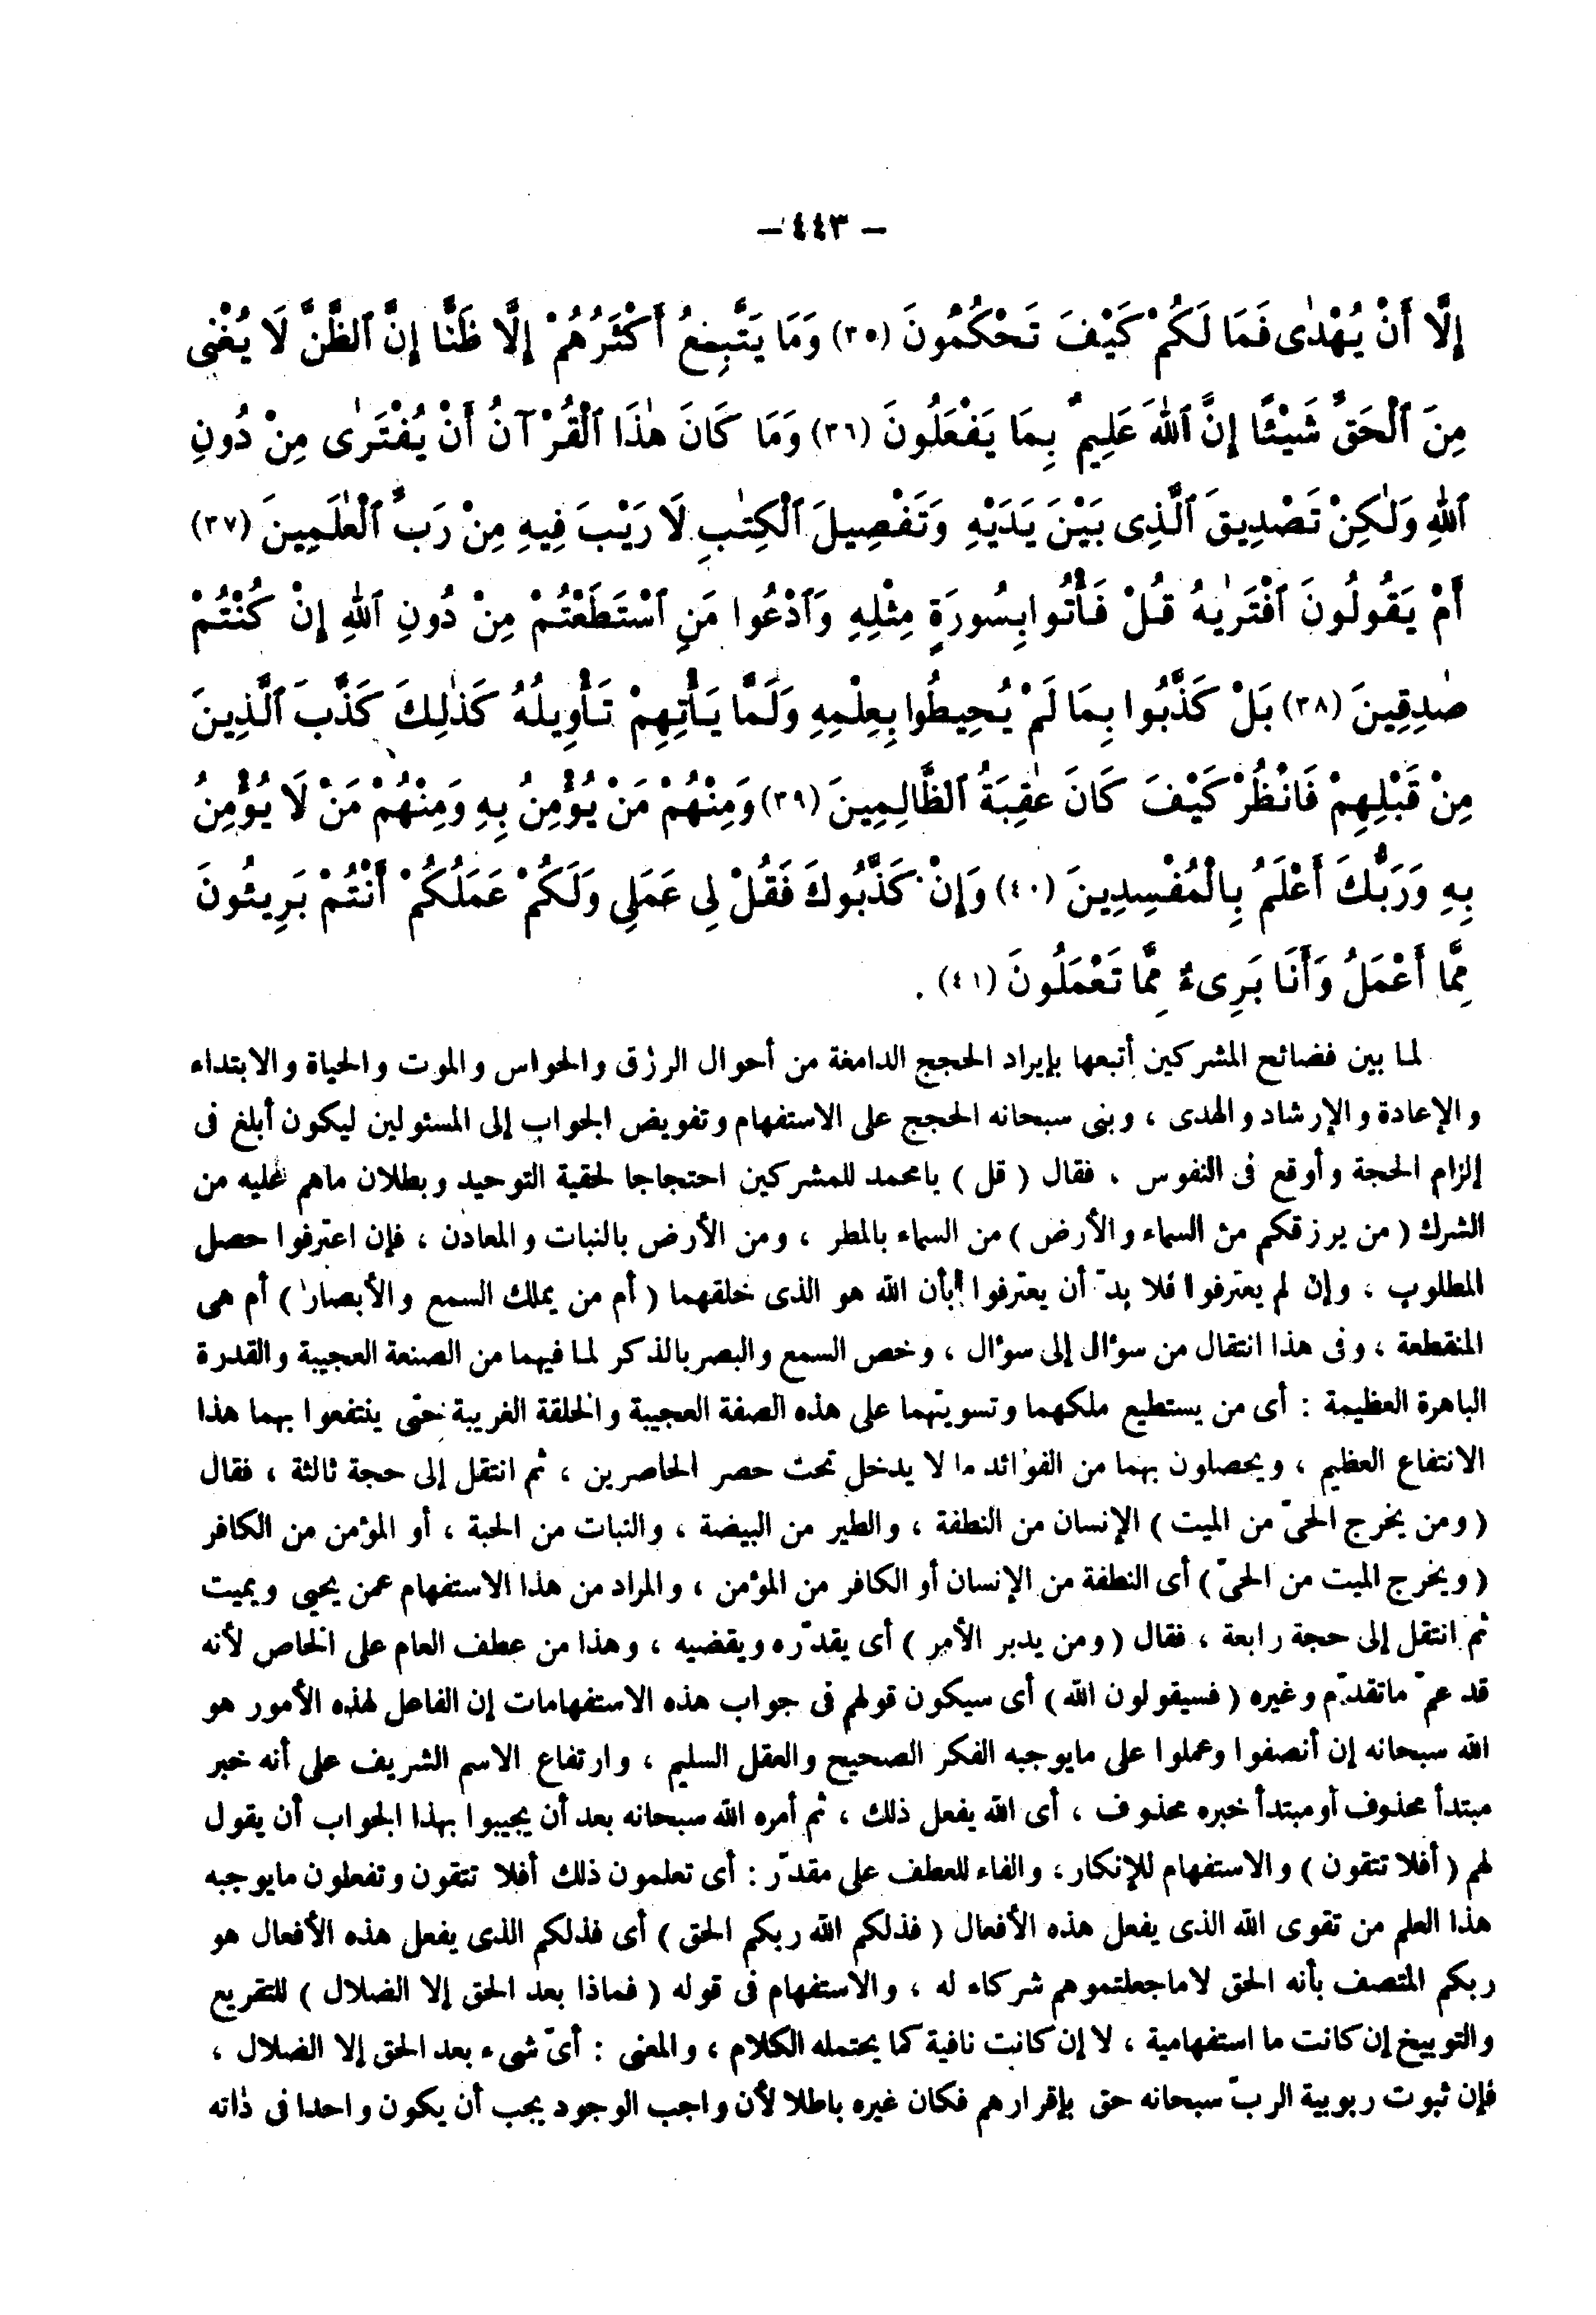 – ٤٤٣ –
إِلَّا أَنْ يُهْدٰى فَمَا لَكُمْ كَيْفَ تَحْكُمُونَ (٣٥) وَمَا يَتَّبِعُ أَكْثَرُهُمْ إِلَّا ظَنًّا إِنَّ ٱلظَّنَّ لَا يُغْنِى
مِنَ ٱلْحَقِّ شَيْئًا إِنَّ ٱللّٰهَ عَلِيمٌ بِمَا يَفْعَلُونَ (٣٦) وَمَا كَانَ هٰذَا ٱلْقُرْآنُ أَنْ يُفْتَرٰى مِنْ دُونِ
ٱللّٰهِ وَلٰكِنْ تَصْدِيقَ ٱلَّذِى بَيْنَ يَدَيْهِ وَتَفْصِيلَ ٱلْكِتٰبِ لَا رَيْبَ فِيهِ مِنْ رَبِّ ٱلْعٰلَمِينَ (٣٧)
أَمْ يَقُولُونَ ٱفْتَرٰيهُ قُلْ فَأْتُوا بِسُورَةٍ مِثْلِهِ وَٱدْعُوا مَنِ ٱسْتَطَعْتُمْ مِنْ دُونِ ٱللّٰهِ إِنْ كُنْتُمْ
صٰدِقِينَ (٣٨) بَلْ كَذَّبُوا بِمَا لَمْ يُحِيطُوا بِعِلْمِهِ وَلَمَّا يَأْتِهِمْ تَأْوِيلُهُ كَذٰلِكَ كَذَّبَ ٱلَّذِينَ
مِنْ قَبْلِهِمْ فَانْظُرْ كَيْفَ كَانَ عٰقِبَةُ ٱلظَّالِمِينَ (٣٩) وَمِنْهُمْ مَنْ يُؤْمِنُ بِهِ وَمِنْهُمْ مَنْ لَا يُؤْمِنُ
بِهِ وَرَبُّكَ أَعْلَمُ بِالْمُفْسِدِينَ (٤٠) وَإِنْ كَذَّبُوكَ فَقُلْ لِى عَمَلِى وَلَكُمْ عَمَلُكُمْ أَنْتُمْ بَرِيئُونَ
مِمَّا أَعْمَلُ وَأَنَا بَرِىءٌ مِمَّا تَعْمَلُونَ (٤١) .
لما بين فضائع المشركين أتبعها بإيراد الحجج الدامغة من أحوال الرزق والحواس والموت والحياة والابتداء
والإعادة والإرشاد والهدى ، وبنى سبحانه الحجج على الاستفهام وتفويض الجواب إلى المسئولين ليكون أبلغ فى
إلزام الحجة وأوقع فى النفوس ، فقال ( قل ) يامحمد للمشركين احتجاجا لحقية التوحيد وبطلان ماهم عليه من
الشرك ( من يرزقكم من السماء والأرض ) من السماء بالمطر ، ومن الأرض بالنبات والمعادن ، فإن اعترفوا حصل
المطلوب ، وإن لم يعترفوا فلا بدّ أن يعترفوا بأن الله هو الذى خلقهما ( أم من يملك السمع والأبصار ) أم هى
المنقطعة ، وفى هذا انتقال من سؤال إلى سؤال ، وخص السمع والبصر بالذكر لما فيهما من الصنعة العجيبة والقدرة
الباهرة العظيمة : أى من يستطيع ملكهما وتسويتهما على هذه الصفة العجيبة والخلقة الغريبة حتى ينتفعوا بهما هذا
الانتفاع العظيم ، ويحصلون بهما من الفوائد ما لا يدخل تحت حصر الحاصرين ، ثم انتقل إلى حجة ثالثة ، فقال
( ومن يخرج الحىّ من الميت ) الإنسان من النطفة ، والطير من البيضة ، والنبات من الحبة ، أو المؤمن من الكافر
( ويخرج الميت من الحىّ ) أى النطفة من الإنسان أو الكافر من المؤمن ، والمراد من هذا الاستفهام عمن يحيى ويميت
ثم انتقل إلى حجة رابعة ، فقال ( ومن يدبر الأمر ) أى يقدّره ويقضيه ، وهذا من عطف العام على الخاص لأنه
قد عمّ ماتقدّم وغيره ( فسيقولون الله ) أى سيكون قولهم فى جواب هذه الاستفهامات إن الفاعل لهذه الأمور هو
الله سبحانه إن أنصفوا وعملوا على مايوجبه الفكر الصحيح والعقل السليم ، وارتفاع الاسم الشريف على أنه خبر
مبتدأ محذوف أو مبتدأ خبره محذوف ، أى الله يفعل ذلك ، ثم أمره الله سبحانه بعد أن يجيبوا بهذا الجواب أن يقول
لهم ( أفلا تتقون ) والاستفهام للإنكار ، والفاء للعطف على مقدّر : أى تعلمون ذلك أفلا تتقون وتفعلون مايوجبه
هذا العلم من تقوى الله الذى يفعل هذه الأفعال ( فذلكم الله ربكم الحق ) أى فذلكم الذى يفعل هذه الأفعال هو
ربكم المتصف بأنه الحق لاماجعلتموهم شركاء له ، والاستفهام فى قوله ( فماذا بعد الحق إلا الضلال ) للتقريع
والتوبيخ إن كانت ما استفهامية ، لا إن كانت نافية كما يحتمله الكلام ، والمعنى : أىّ شىء بعد الحق إلا الضلال ،
فإن ثبوت ربوبية الربّ سبحانه حق بإقرارهم فكان غيره باطلا لأن واجب الوجود يجب أن يكون واحدا فى ذاته